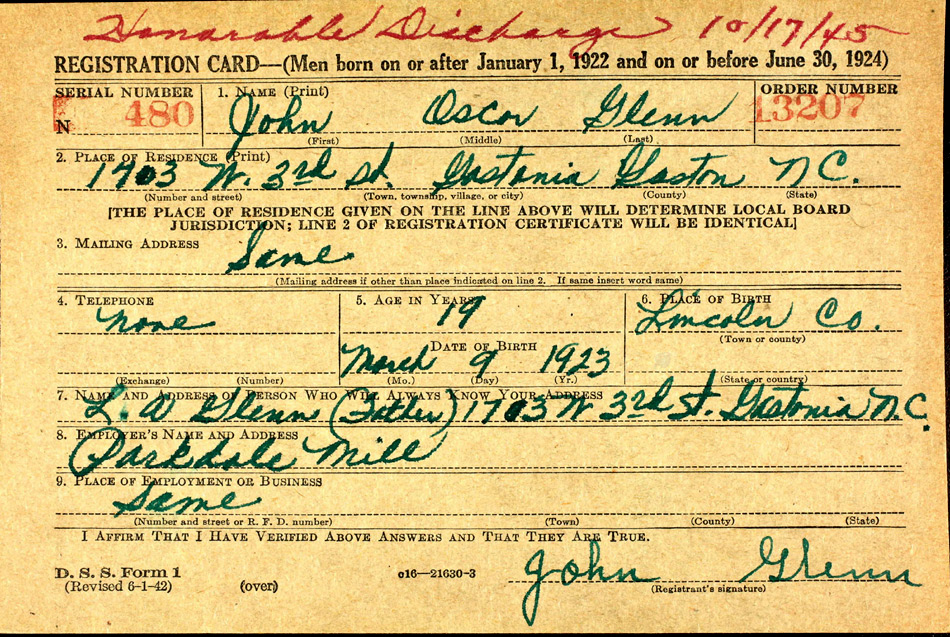 Honarable Discharge 10/17/45
REGISTRATION CARD—(Men born on or after January 1, 1922 and on or before June 30, 1924)
SERIAL NUMBER 1. NAME (Print) ORDER NUMBER
N 480 John Oscar Glenn 13207
(First) (Middle) (Last)
2. PLACE OF RESIDENCE (Print)
1703 W. 3rd St. Gastonia Gaston N C.
(Number and street) (Town, township, village, or city) (County) (State)
[THE PLACE OF RESIDENCE GIVEN ON THE LINE ABOVE WILL DETERMINE LOCAL BOARD
JURISDICTION; LINE 2 OF REGISTRATION CERTIFICATE WILL BE IDENTICAL]
3. MAILING ADDRESS
Same
(Mailing address if other than place indicated on line 2. If same insert word same)
4. TELEPHONE 5. AGE IN YEARS 6. PLACE OF BIRTH
none 19 Lincoln Co.
DATE OF BIRTH (Town or county)
March 9 1923
(Exchange) (Number) (Mo.) (Day) (Yr.) (State or country)
7. NAME AND ADDRESS OF PERSON WHO WILL ALWAYS KNOW YOUR ADDRESS
L. A Glenn (Father) 1703 W 3rd St. Gastonia N.C.
8. EMPLOYER'S NAME AND ADDRESS
Parkdale Mill
9. PLACE OF EMPLOYMENT OR BUSINESS
Same
(Number and street or R. F. D. number) (Town) (County) (State)
I AFFIRM THAT I HAVE VERIFIED ABOVE ANSWERS AND THAT THEY ARE TRUE.
John Glenn
D. S. S. Form 1 c16—21630-3
(Revised 6-1-42) (over) (Registrant's signature)